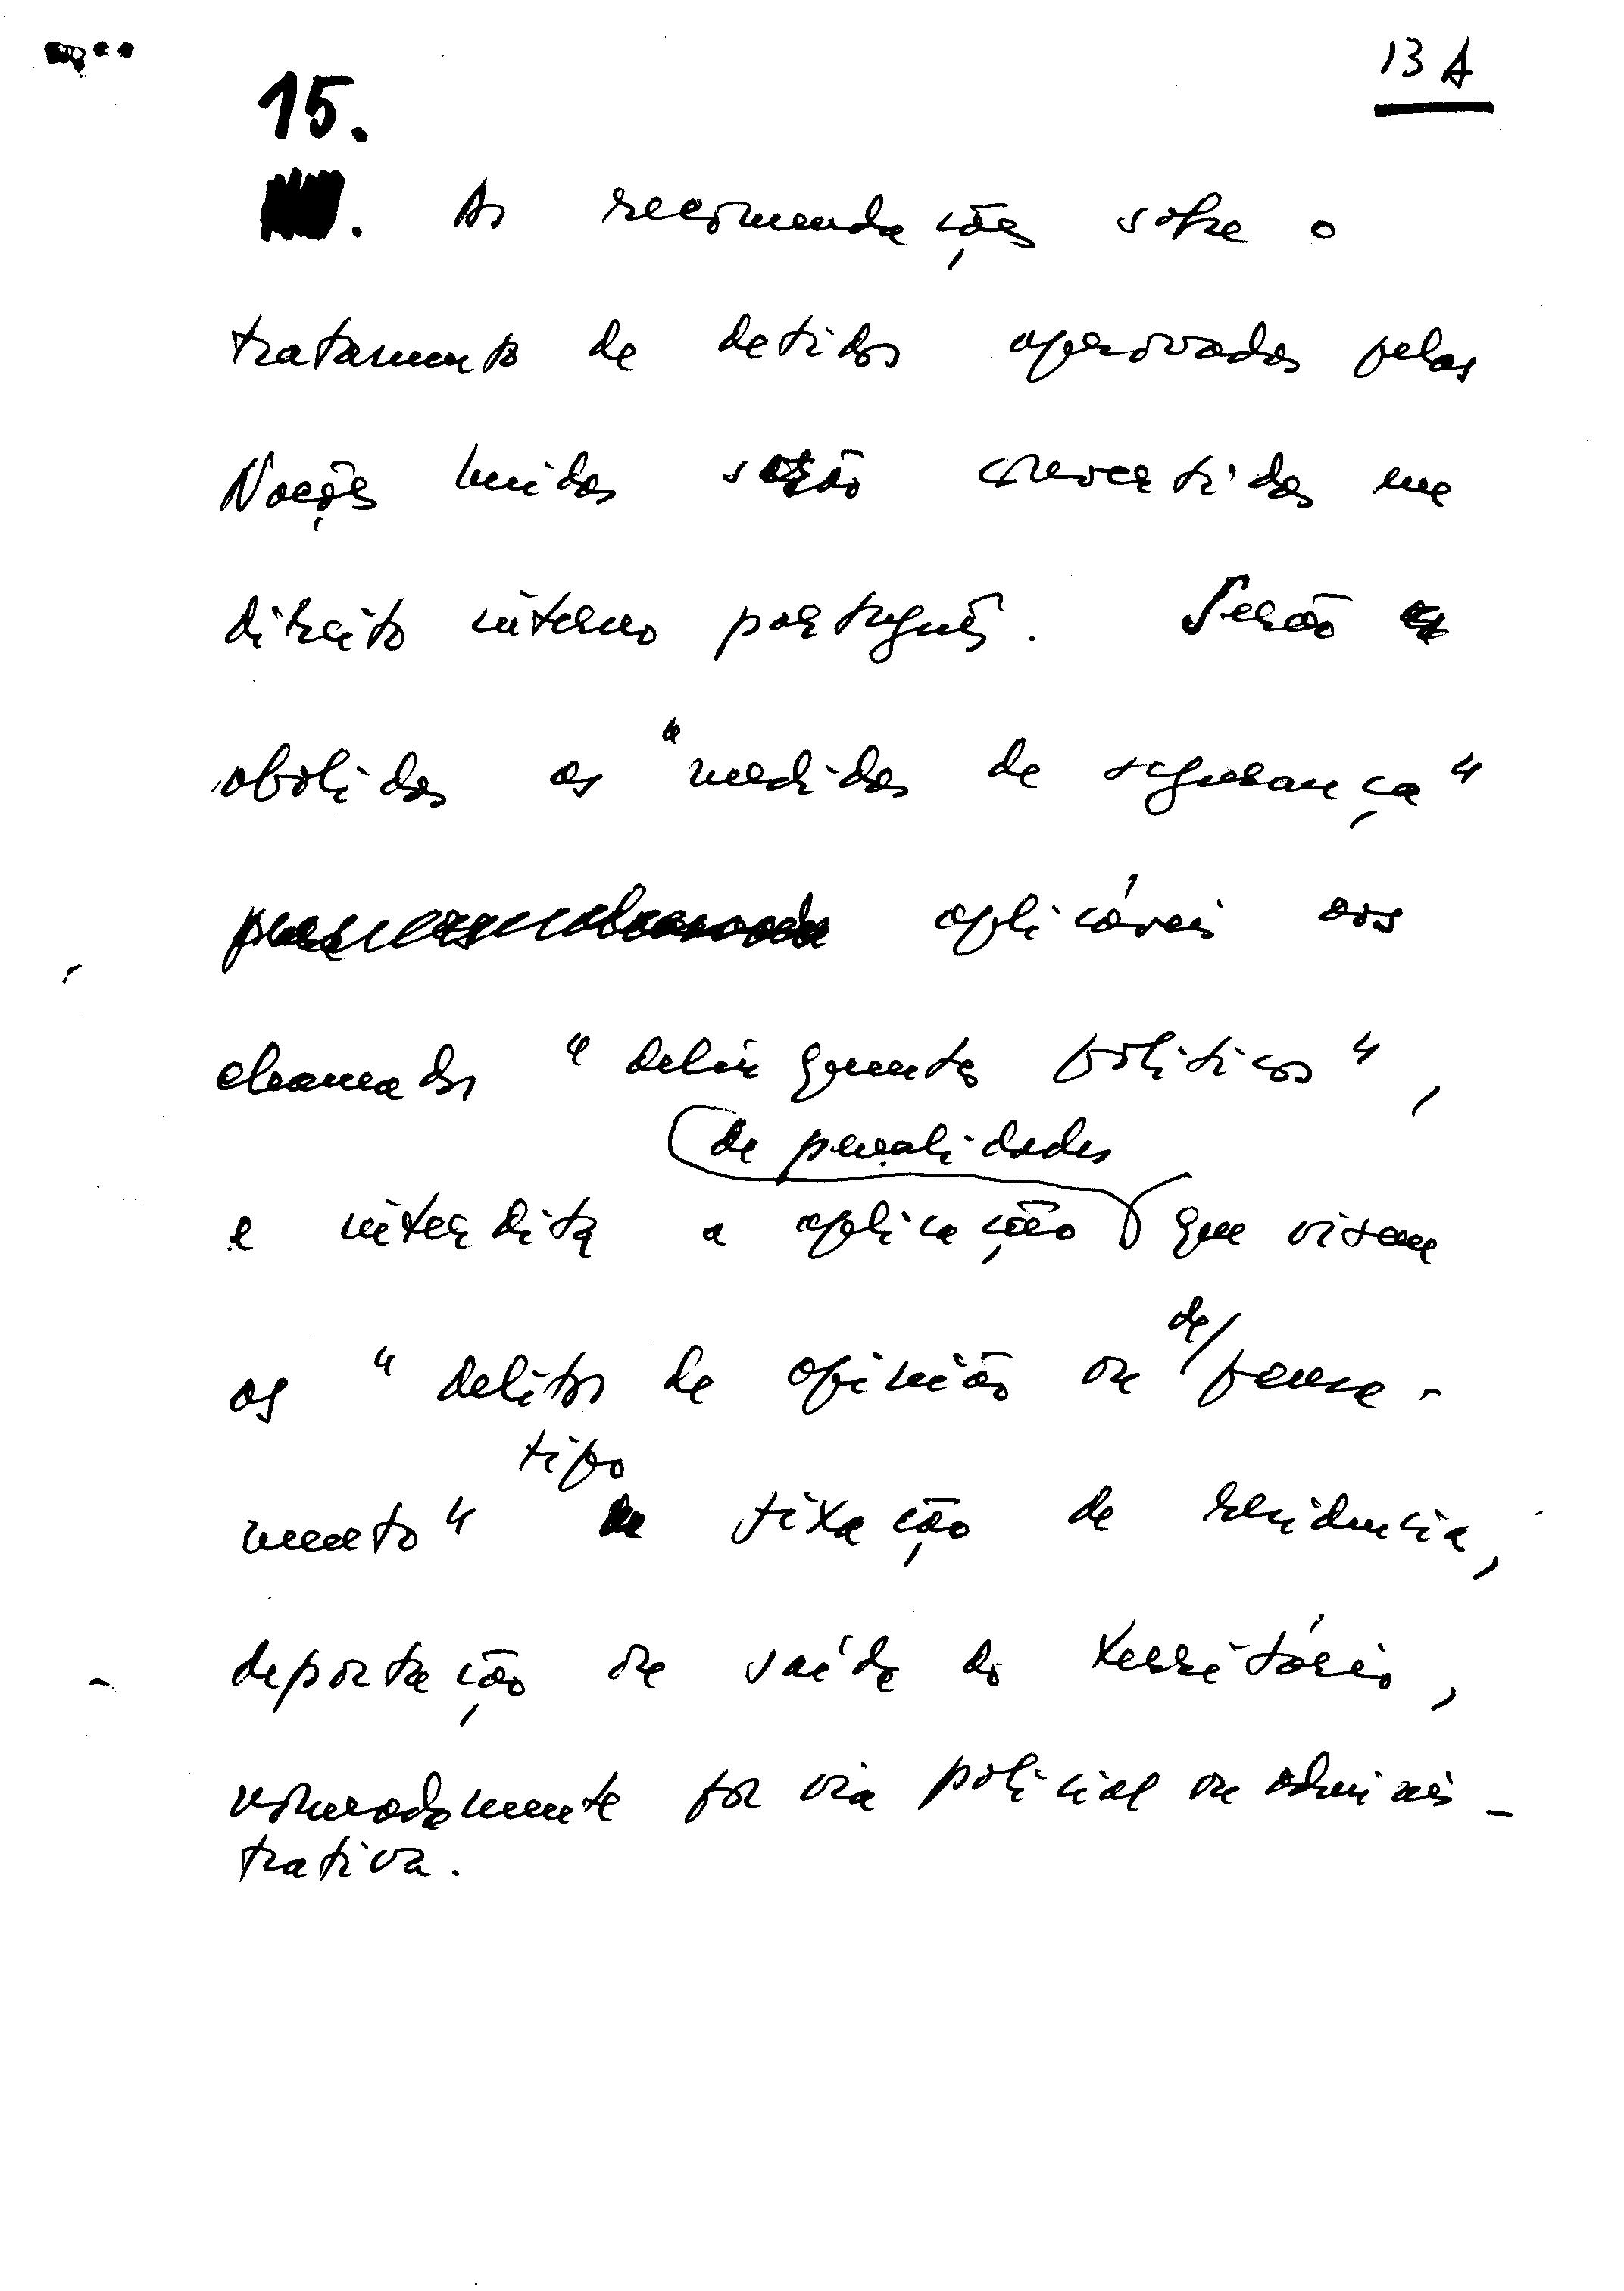 13 A
15.
. As recomendações sobre o
tratamento de detidos aprovadas pelas
Nações Unidas serão convertidas em
direito interno português. Serão
abolidas as "medidas de segurança"
aplicáveis aos
chamados "delinquentes políticos",
de penalidades
e interdita a aplicação que visam
os "delitos de opinião ou de/ pensa-
tipo
mento" fixação de residência,
deportação ou saída do território,
nomeadamente por via policial ou adminis-
trativa.